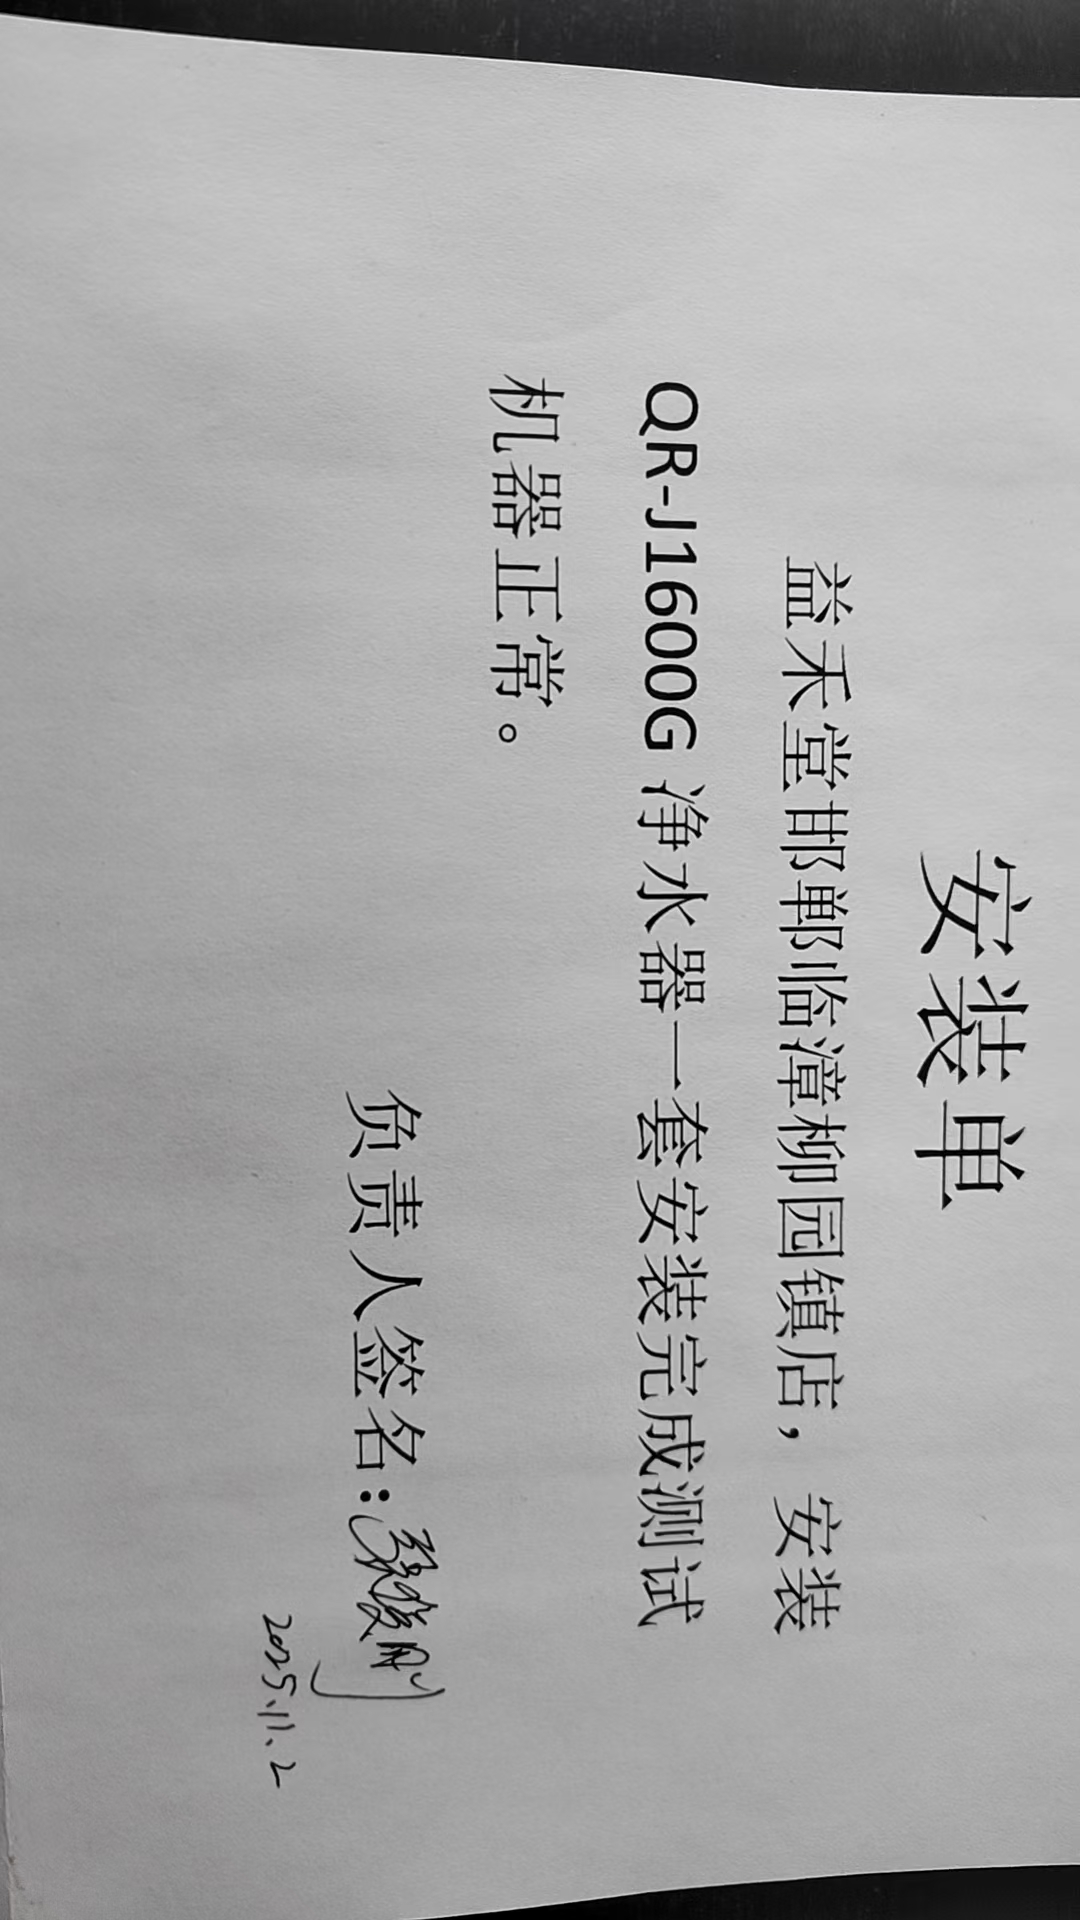 安装单
益禾堂邯郸临漳柳园镇店，安装
QR-J1600G 净水器一套安装完成测试
机器正常。
负责人签名:
2025.11.2